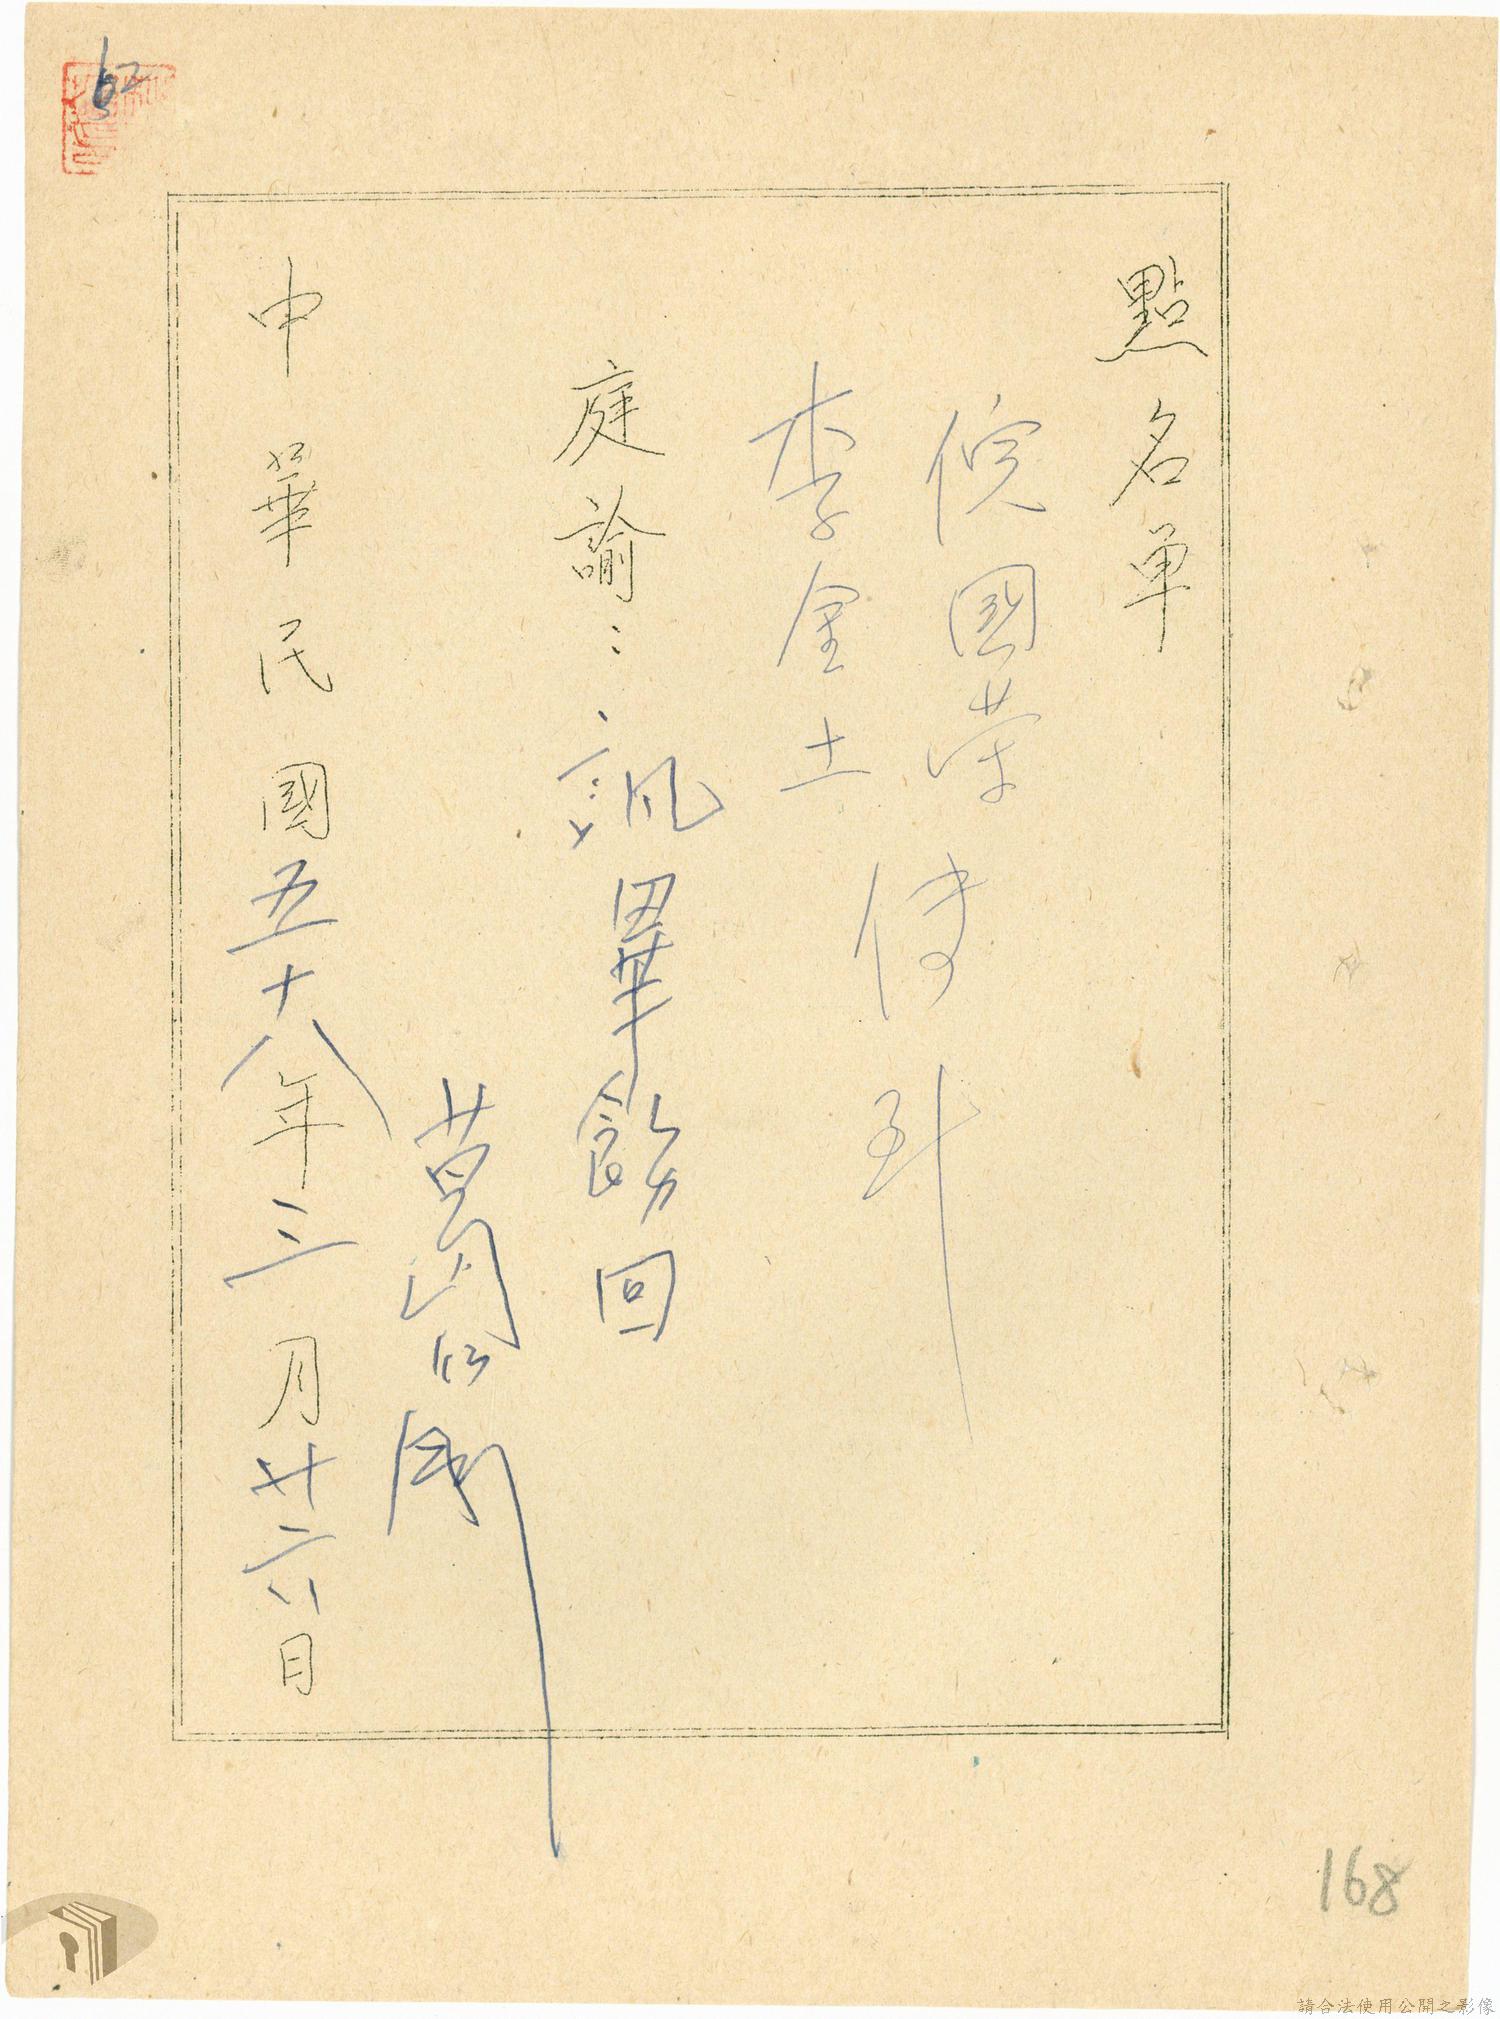 點名單
倪國榮
李金土
傳到
庭諭：訊畢飭回
葛
中華民國五十八年三月廿六日
62
168
請合法使用公開之影像